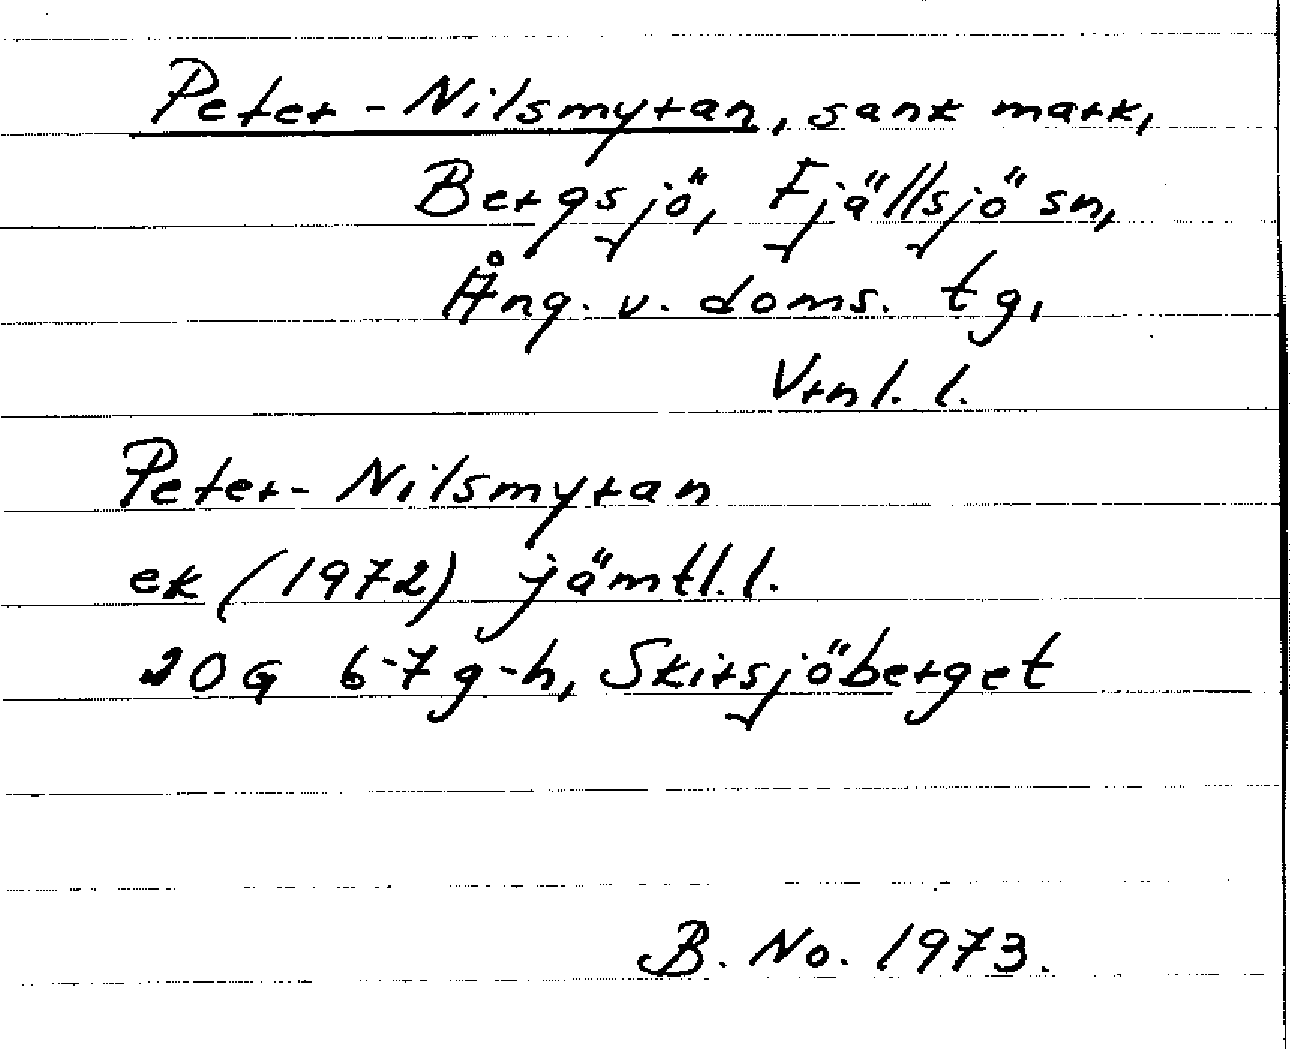 Peter-Nilsmyran, sank mark,
Bergsjö, Fjällsjö sn,
Ång. v. doms. tg,
Vrnl. l.
Peter-Nilsmyran
ek (1972) jämtl. l.
20G 6-7g-h, Skirsjöberget
B. No. 1973.